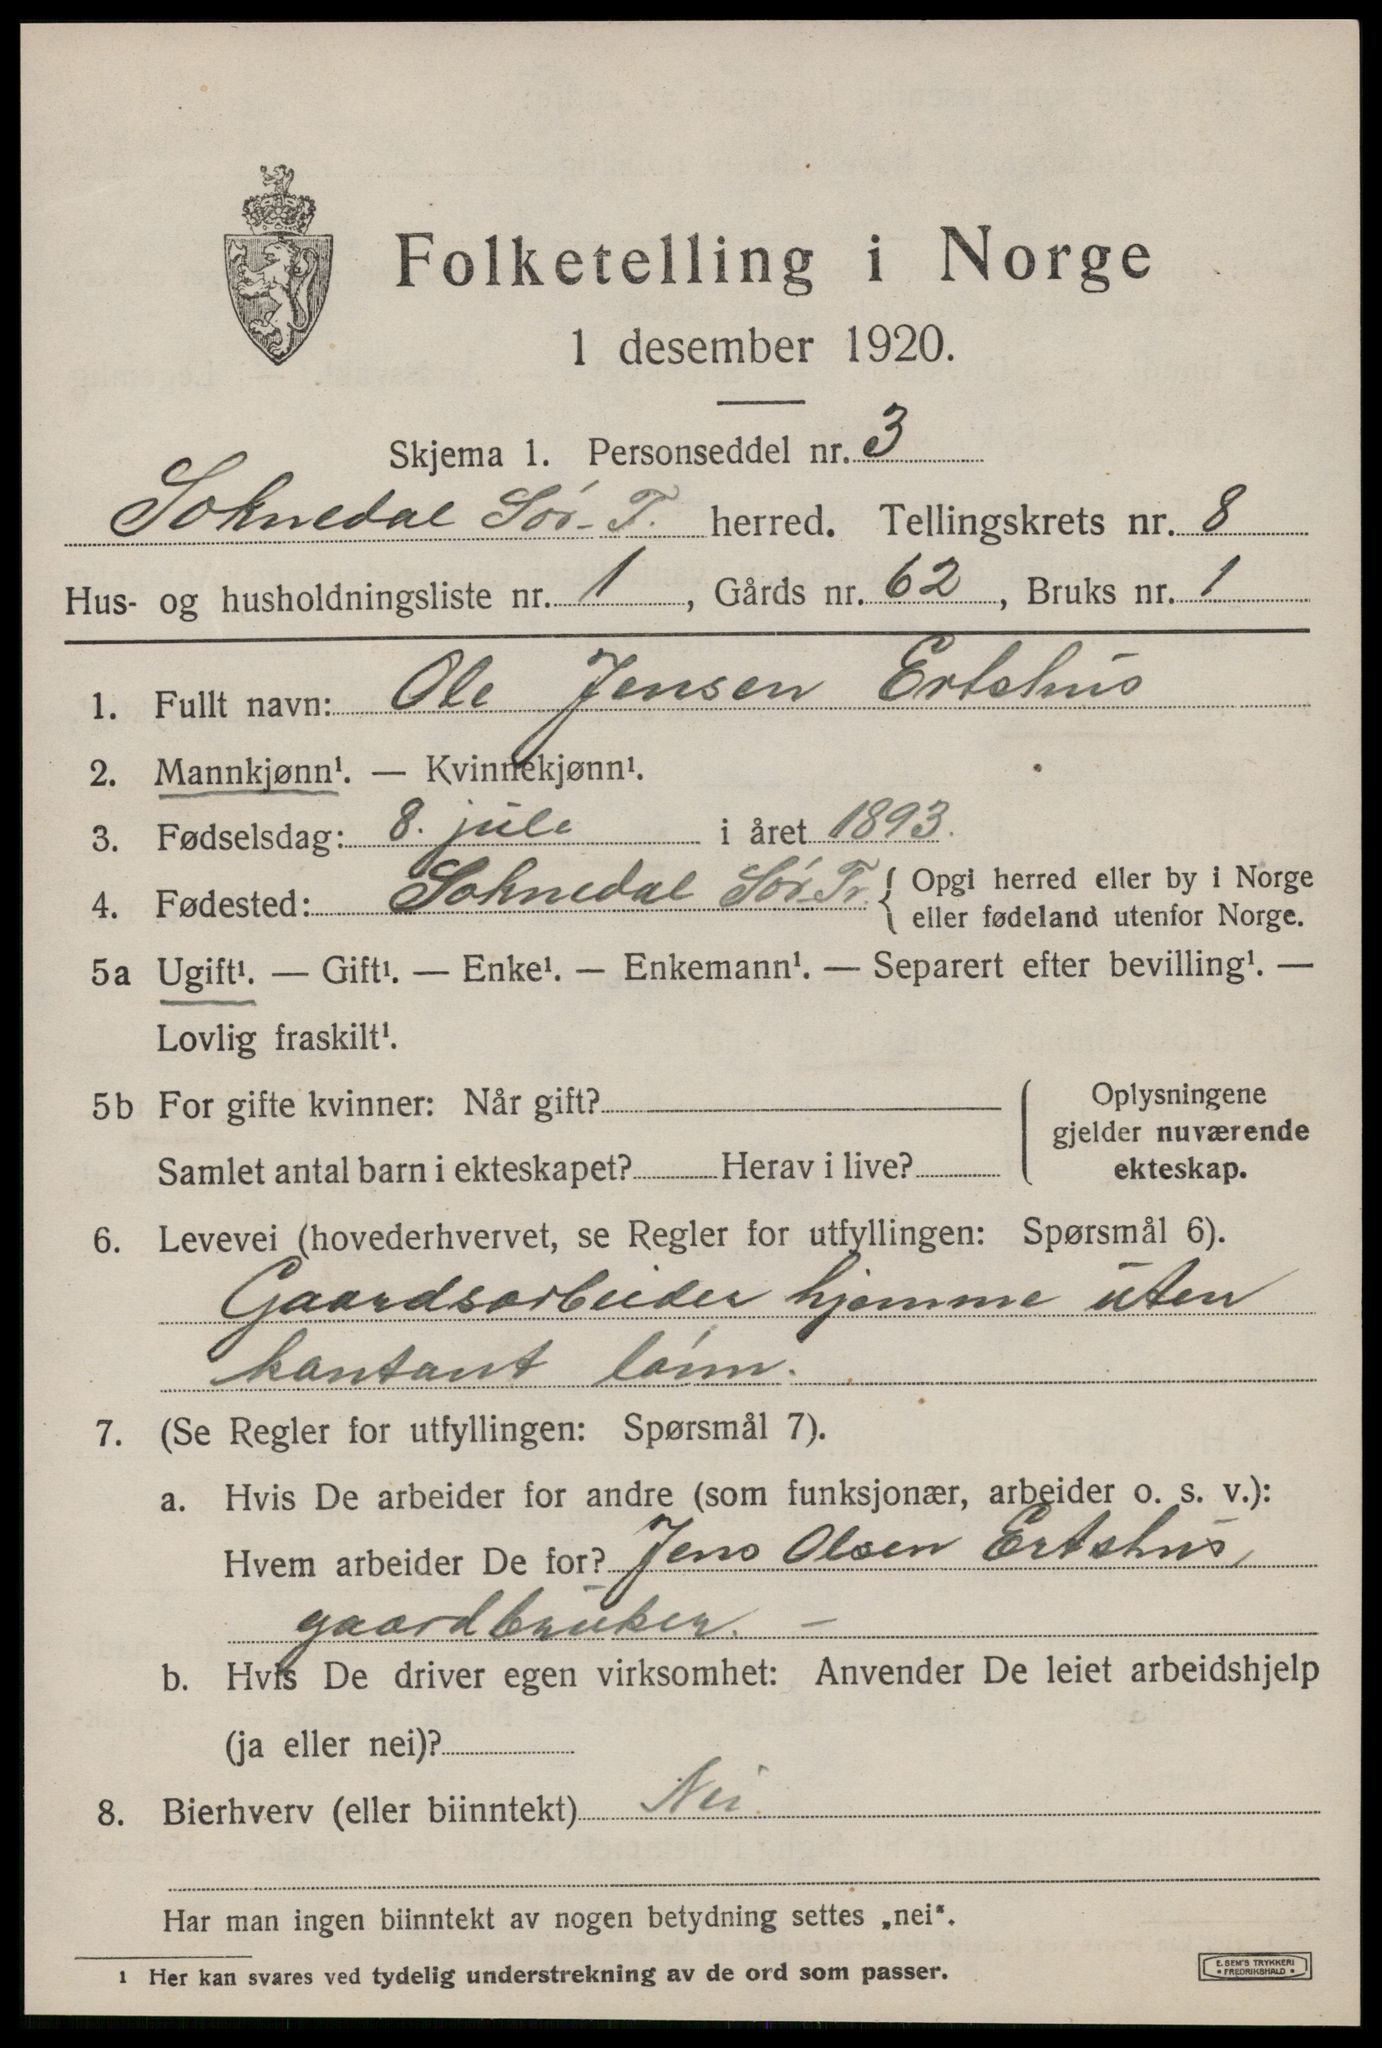 Folketelling i Norge
1 desember 1920.
Skjema 1. Personseddel nr. 3
Soknedal Sór-T. herred. Tellingskrets nr. 8
Hus- og husholdningsliste nr. 1, Gårds nr. 62, Bruks nr. 1
1. Fullt navn: Ole Jensen Ertshus
2. Mannkjønn¹. — Kvinnekjønn¹.
3. Fødselsdag: 8. juli i året 1893.
4. Fødested: Soknedal Sór-Tr. { Opgi herred eller by i Norge
eller fødeland utenfor Norge.
5a Ugift¹. — Gift¹. — Enke¹. — Enkemann¹. — Separert efter bevilling¹. —
Lovlig fraskilt¹.
5b For gifte kvinner: Når gift?
Samlet antal barn i ekteskapet? Herav i live?
Oplysningene
gjelder nuværende
ekteskap.
6. Levevei (hovederhvervet, se Regler for utfyllingen: Spørsmål 6).
Gaardsarbeider hjemme uten
kontant lónn.
7. (Se Regler for utfyllingen: Spørsmål 7).
a. Hvis De arbeider for andre (som funksjonær, arbeider o. s. v.):
Hvem arbeider De for? Jens Olsen Ertshus,
gaardbruker. —
b. Hvis De driver egen virksomhet: Anvender De leiet arbeidshjelp
(ja eller nei)?
8. Bierhverv (eller biinntekt) Nei
Har man ingen biinntekt av nogen betydning settes „nei“.
¹ Her kan svares ved tydelig understrekning av de ord som passer.
E. SEM'S TRYKKERI
• FREDRIKSHALD •